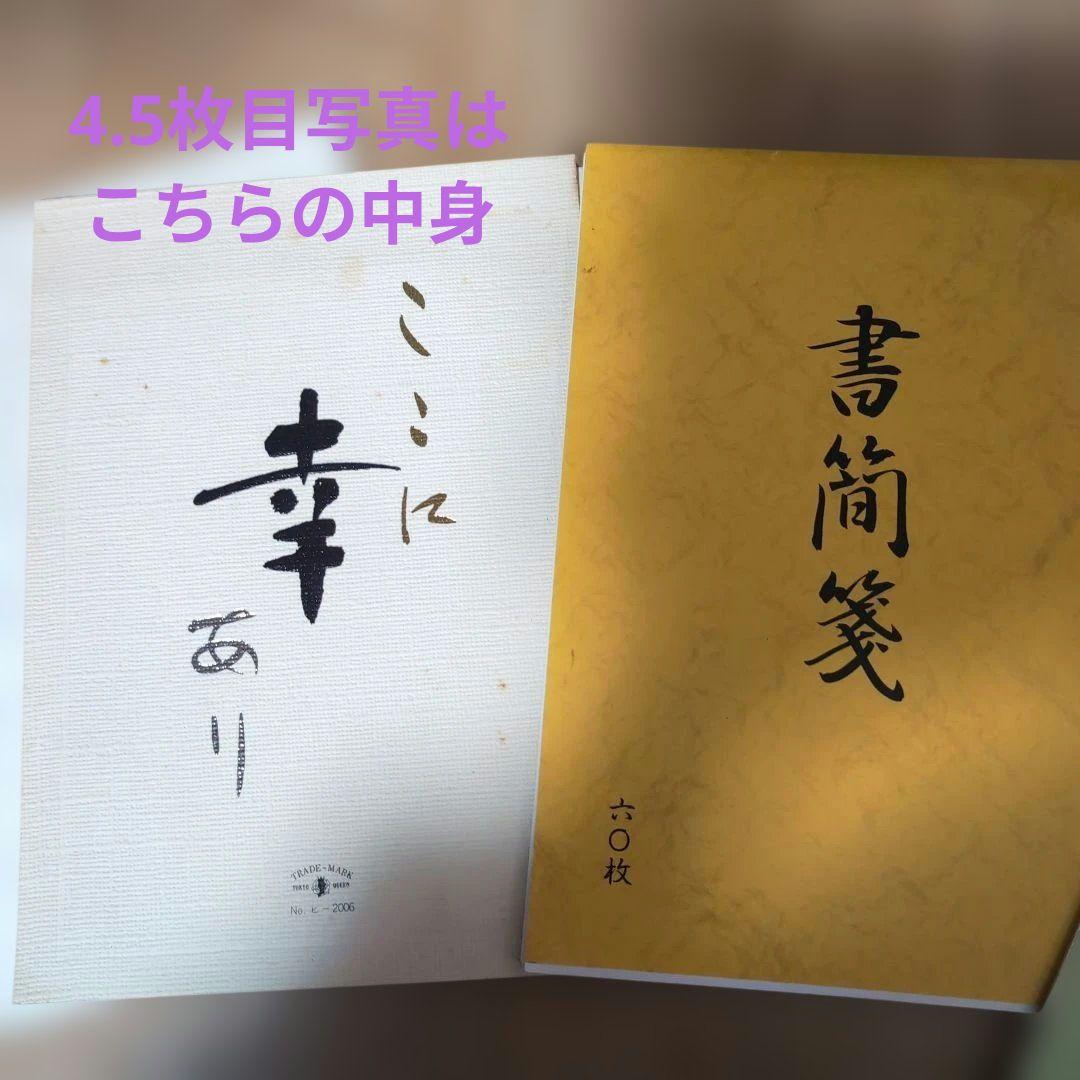 4.5枚目写真は
こちらの中身
ここに
幸
あり
TRADE-MARK
TOKYO QUEEN
No. ピー2006
書簡箋
六〇枚